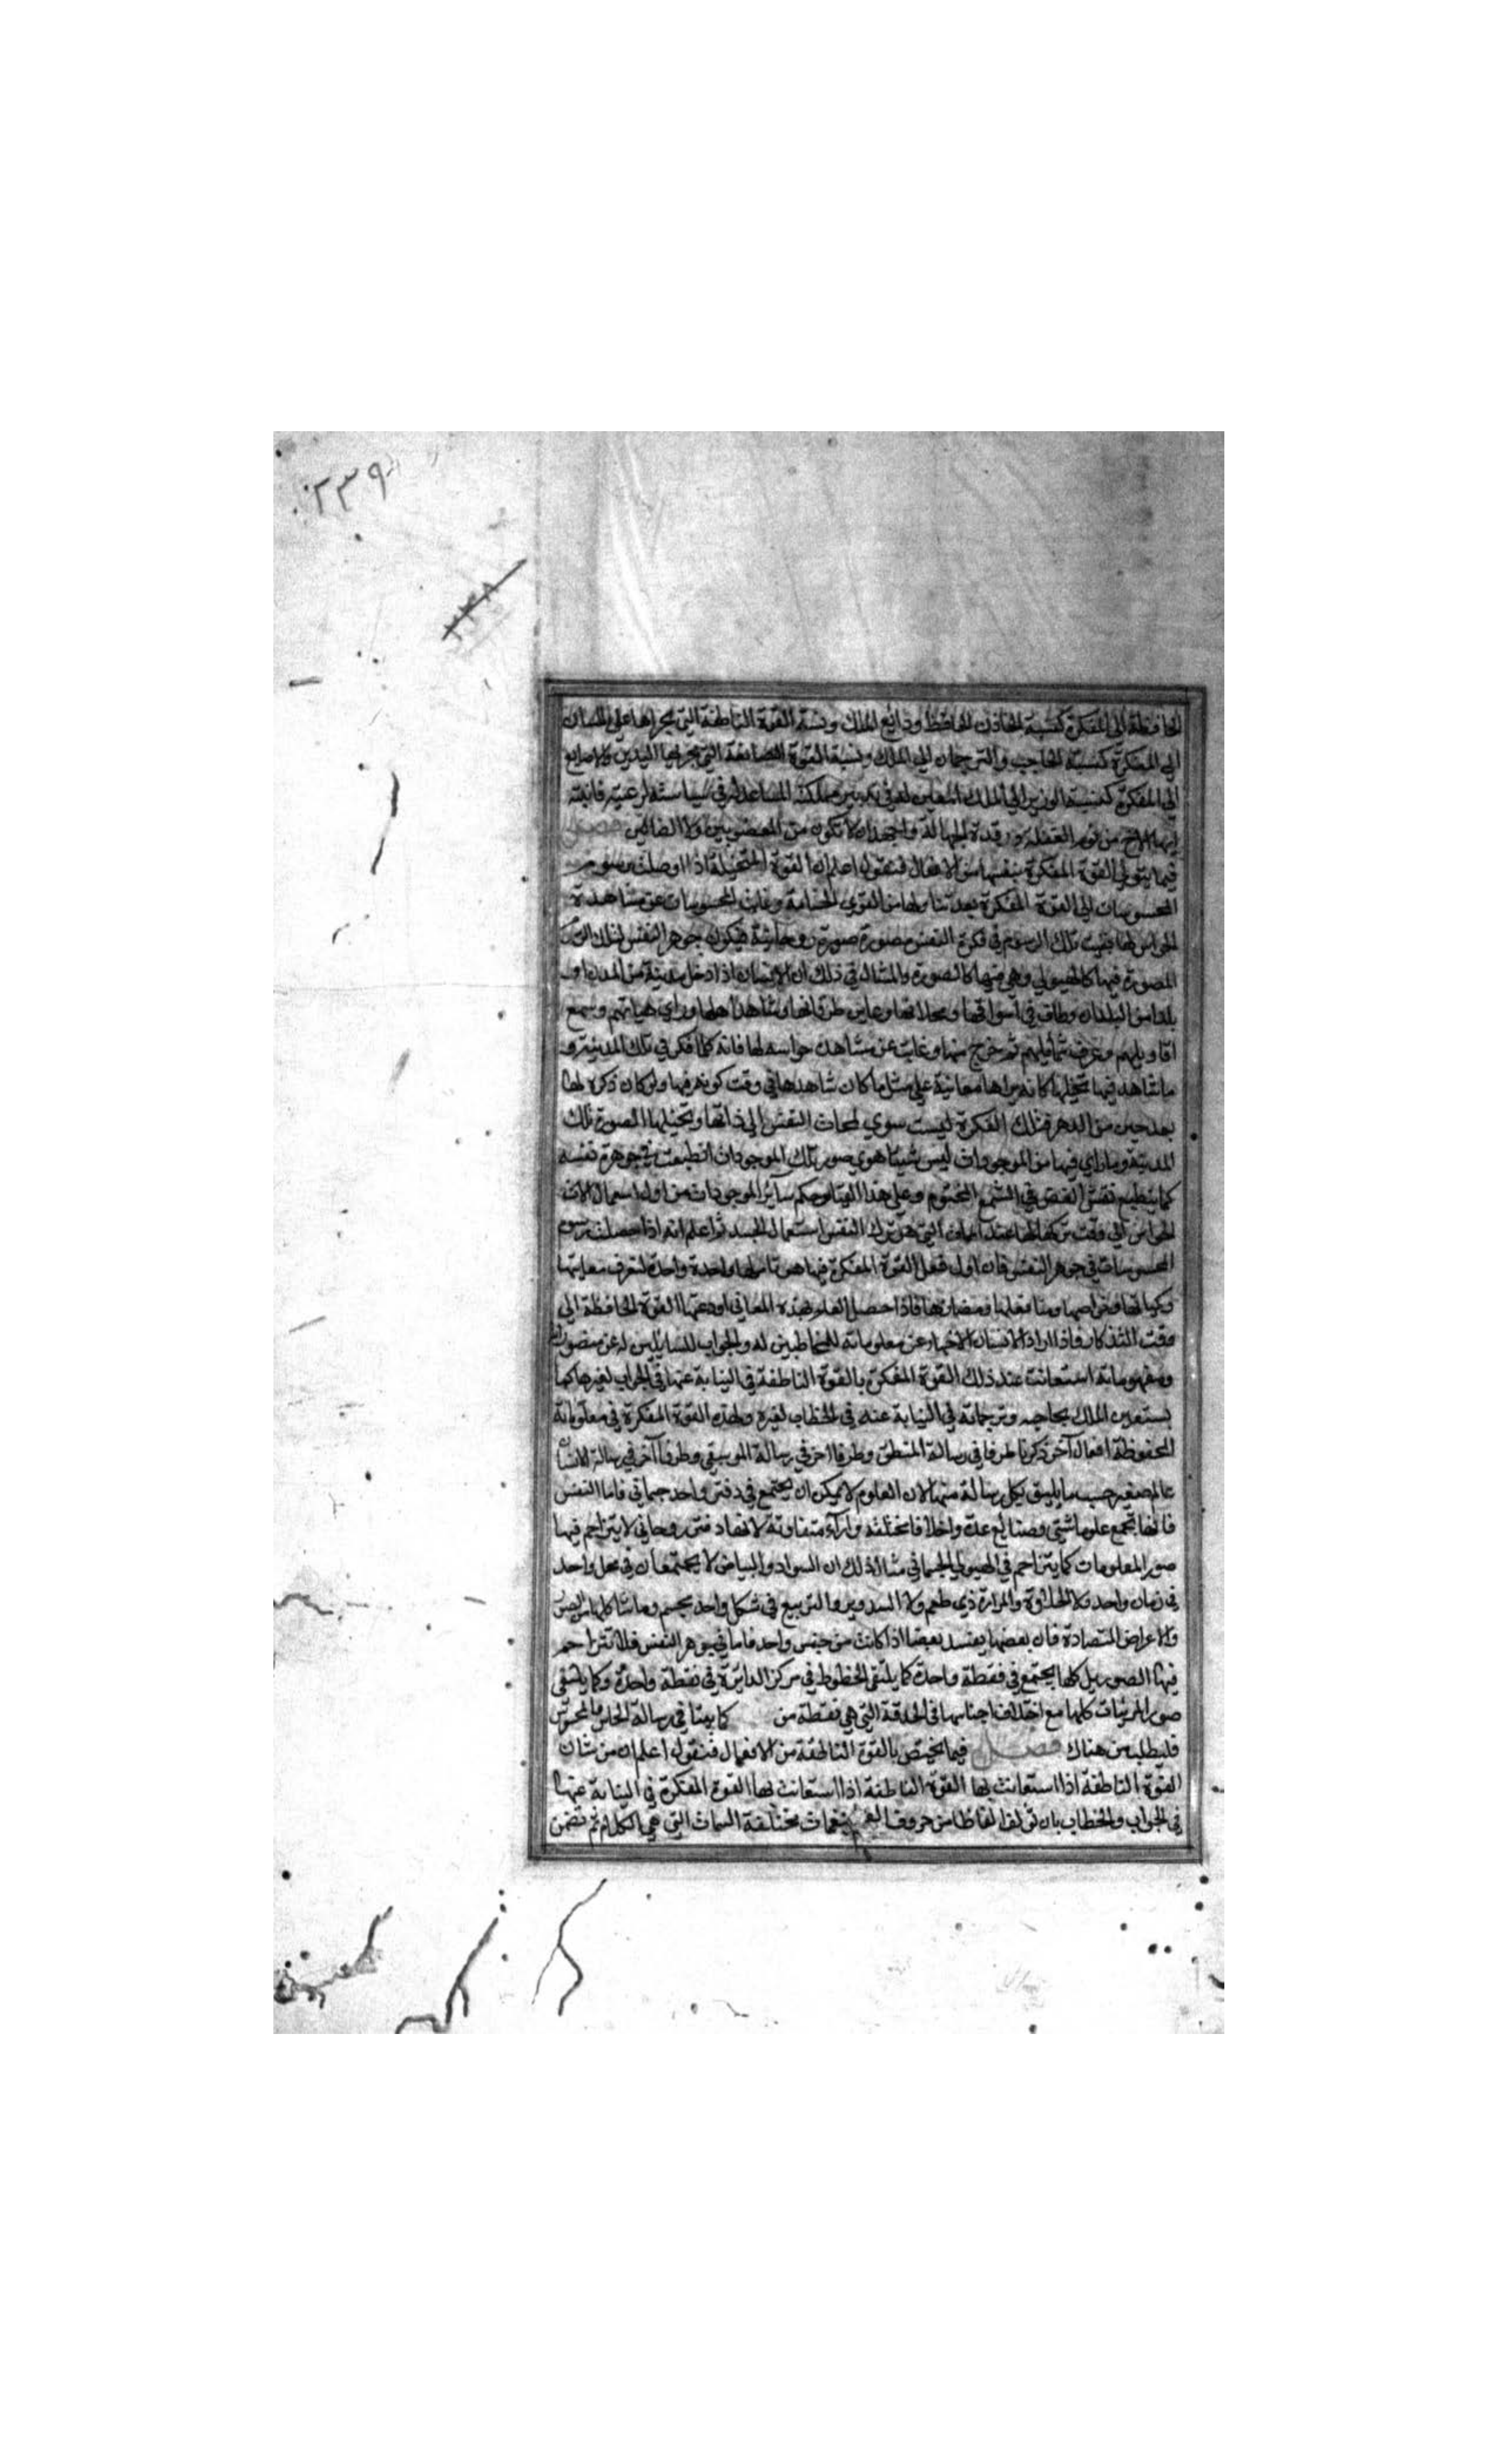 ٢٣٩
٢٣٨
الحافظة الى المفكرة كنسبة الخازن الحافظ ودائع الملك ونسبة القوة الناطقة التي مجراها على اللسان
الى المفكرة كنسبة الحاجب والترجمان الى الملك ونسبة القوة الصانعة التي مجراها اليدين والاصابع
الى المفكرة كنسبة الوزير الى الملك المعين له في تدبير مملكته المساعد له في سياسته لرعيته فانتبه
ايها الاخ من نوم الغفلة ورقدة الجهالة واجهد ان لا تكون من المغضوبين ولا الضالين فصل
فيما يتولى القوة المفكرة بنفسها من الافعال فنقول اعلم ان القوة المتخيلة اذا اوصلت رسوم
المحسوسات الى القوة المفكرة بعد تناولها من القوى الحساسة وغابت المحسوسات عن مشاهدة
الحواس لها بقيت تلك الرسوم في فكرة النفس مصورة صورة روحانية فيكون جوهر النفس لتلك
المصورة فيها كالهيولى وهي فيها كالصورة والمثال في ذلك ان الانسان اذا دخل مدينة من المدن او
بلدا من البلدان وطاف في اسواقها ومحلاتها وعاين طرقاتها وشاهد اهلها وراي هياتهم وسمع
اقاويلهم وعرف شمايلهم ثم خرج منها وغابت عن مشاهدة حواسه لها فانه كلما فكر في تلك المدينة و
ما شاهد فيها تخيلها كانه يراها معاينة على مثل ما كان شاهدها في وقت كونه فيها ولو كان ذكره لها
بعد حين من الدهر فتلك الفكرة ليست سوي لمحات النفس الى ذاتها وتخيلها الصورة تلك
المدينة وما راي فيها من الموجودات ليس شيئا هوي صور تلك الموجودات انطبعت في جوهرة نفسه
كما ينطبع نقش الفص في الشمع المختوم وعلى هذا القياس حكم سائر الموجودات من اول استعمال الات
الحواس الى وقت تركها لها عند الممات التي هي ترك النفس استعمال الجسد ثم اعلم انه اذا حصلت رسوم
المحسوسات في جوهر النفس فان اول فعل القوة المفكرة فيها هو تاملها واحدة واحدة لتعرف معانيها
وكمياتها وخواصها ومنافعها ومضارها فاذا حصل العلم بهذه المعاني اودعتها القوة الحافظة الى
وقت التذكار فاذا اراد الانسان الاخبار عن معلوماته للمخاطبين له والجواب للسائلين له عن متصوراته
ومفهوماته استعانت عند ذلك القوة المفكرة بالقوة الناطقة في النيابة عنها في الجواب لغيرها كما
يستعين الملك بحاجبه وترجمانه في النيابة عنه في الخطاب لغيره ولهذه القوة المفكرة في معلوماته
المحفوظة افعال آخر ذكرنا طرفا في رسالة المنطق وطرفا اخر في رسالة الموسيقي وطرفا آخر في رسالة الانسان
عالم صغير حسب ما يليق بكل رسالة منها لان العلوم لا يمكن ان يجتمع في دفتر واحد جسماني فاما النفس
فانها تجمع علوما شتى وصنايع عدة واخلاقا مختلفة وارآء متفاوتة لانها دفتر روحاني لا يتزاحم فيها
صور المعلومات كما يتزاحم في الهيولى الجسماني مثال ذلك ان السواد والبياض لا يجتمعان في محل واحد
في زمان واحد ولا الحلاوة والمرارة ذي طعم ولا التدوير والتربيع في شكل واحد مجسم وما شاكلها من الصور
والاعراض المتضادة فان بعضها يفسد بعضا اذا كانت من جنس واحد فاما في جوهر النفس فلا تتزاحم
فيها الصور بل كلها يجتمع في نقطة واحدة كما يلتقي الخطوط في مركز الدائرة في نقطة واحدة وكما يلتقي
صور المرئيات كلها مع اختلاف اجناسها في الحدقة التي هي نقطة من كما بينا في رسالة الحاس والمحسوس
فليطلب من هناك فصل فيما يختص بالقوة الناطقة من الافعال فنقول اعلم ان من شان
القوة الناطقة اذا استعانت لها القوة الناطقة اذا استعانت لها القوة المفكرة في النيابة عنها
في الجواب والخطاب بان تؤلف الفاظا من حروف المعجم بنغمات مختلفة السمات التي هي الكلام ثم تضمن